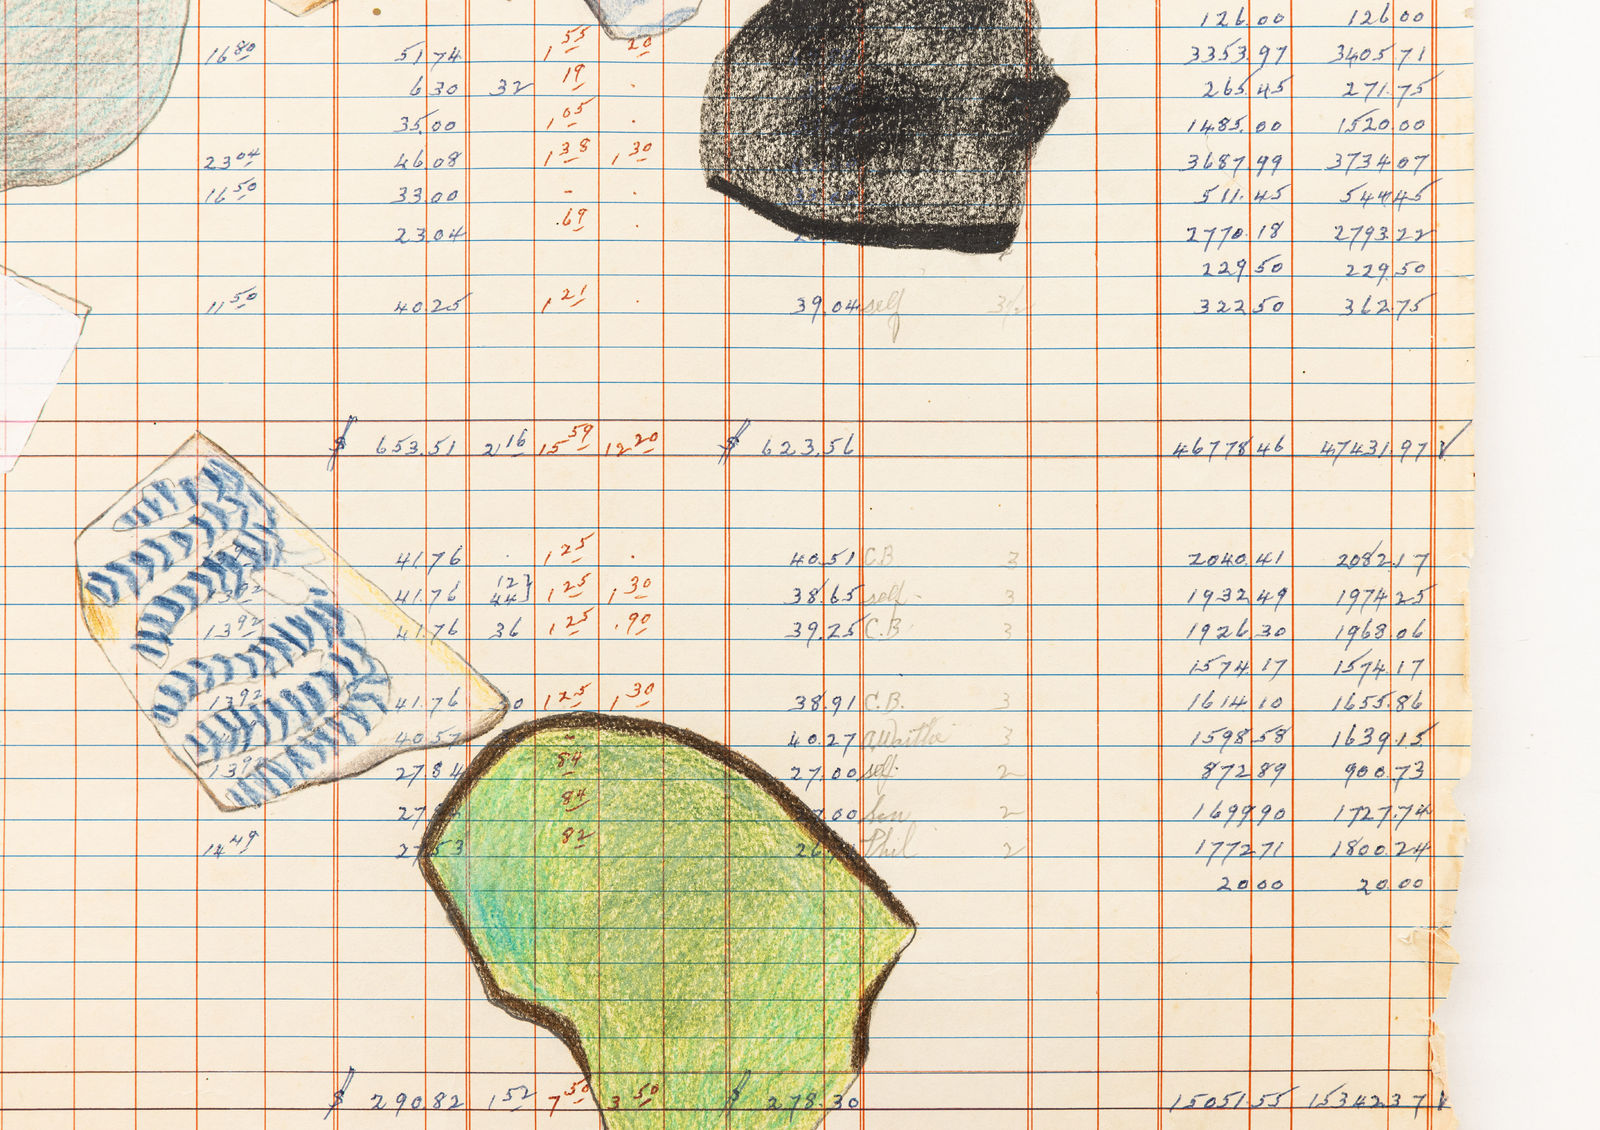 126.00 126.00
16 80 51.74 1 55 .20 3353.97 3405.71
6.30 32 19 . 265.45 271.75
35.00 1 05 . 1485.00 1520.00
23 04 46.08 1 38 1 30 3687.99 3734.07
16 50 33.00 - . 511.45 544.45
23.04 .69 . 2770.18 2793.22
229.50 229.50
11 50 40.25 1 21 . 39.04 self 322.50 362.75
$ 653.51 2 16 15 59 12 20 $ 623.56 46778.46 47431.97 ✓
41.76 . 1 25 . 40.51 C.B 3 2040.41 2082.17
13 92 41.76 12 44} 1 25 1 30 38.65 self - 3 1932.49 1974.25
13 92 41.76 36 1 25 .90 39.25 C.B. 3 1926.30 1968.06
1574.17 1574.17
13 92 41.76 1 25 1 30 38.91 C.B. 3 1614.10 1655.86
40.57 - 40.27 3 1598.58 1639.15
13 92 27.84 84 27.00 self. 2 872.89 900.73
84 2 1699.90 1727.74
14 49 27.53 82 Phil 2 1772.71 1800.24
20.00 20.00
$ 290.82 1 52 7 50 3 50 $ 278.30 15051.55 15342.37 ✓